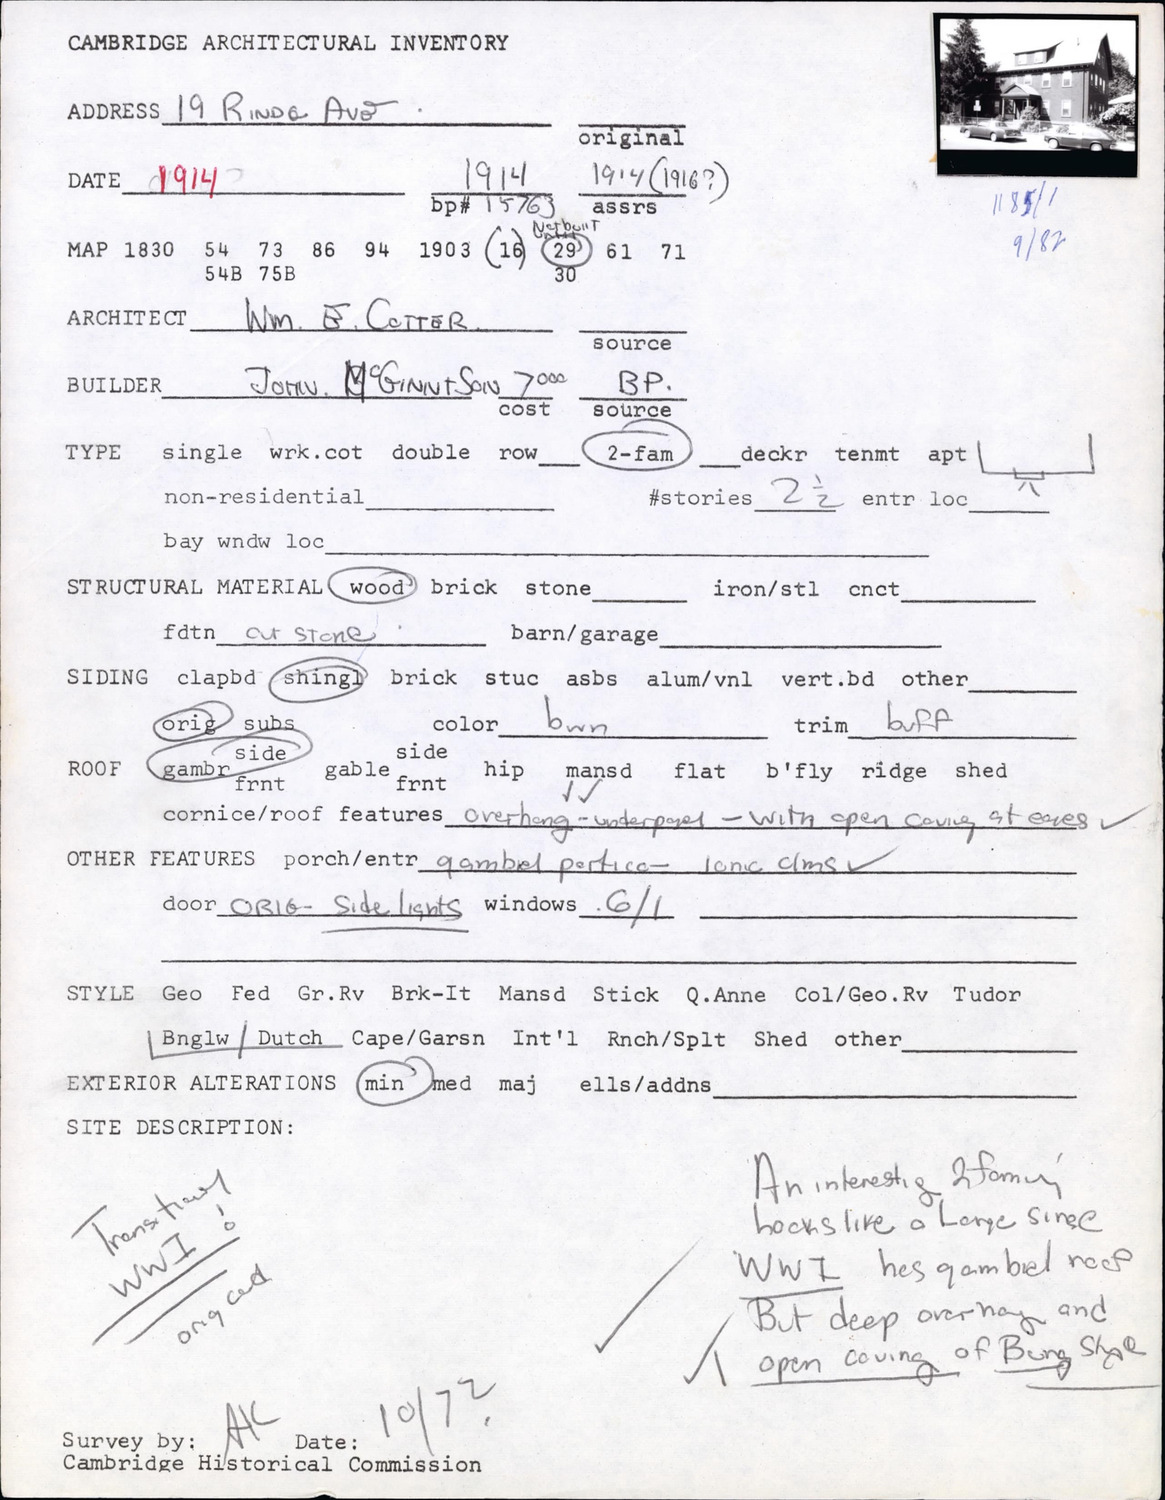 CAMBRIDGE ARCHITECTURAL INVENTORY
ADDRESS 19 RINDGE AVE
original
DATE 1914 1914 1914 (1916?)
bp# 15763 assrs
1185/1
9/82
Notbuilt
MAP 1830 54 73 86 94 1903 (16) 29 61 71
54B 75B 30
ARCHITECT Wm. E. COTTER
source
BUILDER JOHN. McGINNISON 7000 BP.
cost source
TYPE single wrk.cot double row 2-fam deckr tenmt apt
non-residential #stories 2 1/2 entr loc
bay wndw loc
STRUCTURAL MATERIAL wood brick stone iron/stl cnct
fdtn cut stone barn/garage
SIDING clapbd shingl brick stuc asbs alum/vnl vert.bd other
orig subs color bwn trim buff
side side
ROOF gambr gable hip mansd flat b'fly ridge shed
frnt frnt
cornice/roof features overhang - - with open coving at eaves
OTHER FEATURES porch/entr gambrel portico - Ionic clms
door ORIG- Side lights windows 6/1
STYLE Geo Fed Gr.Rv Brk-It Mansd Stick Q.Anne Col/Geo.Rv Tudor
Bnglw / Dutch Cape/Garsn Int'l Rnch/Splt Shed other
EXTERIOR ALTERATIONS min med maj ells/addns
SITE DESCRIPTION:
Transitional
WWI!
orig card
An interesting 2 family
looks like a Large single
WWI has gambrel roof
But deep overhang and
open coving of Bung Style
Survey by: AHC Date: 10/7?
Cambridge Historical Commission